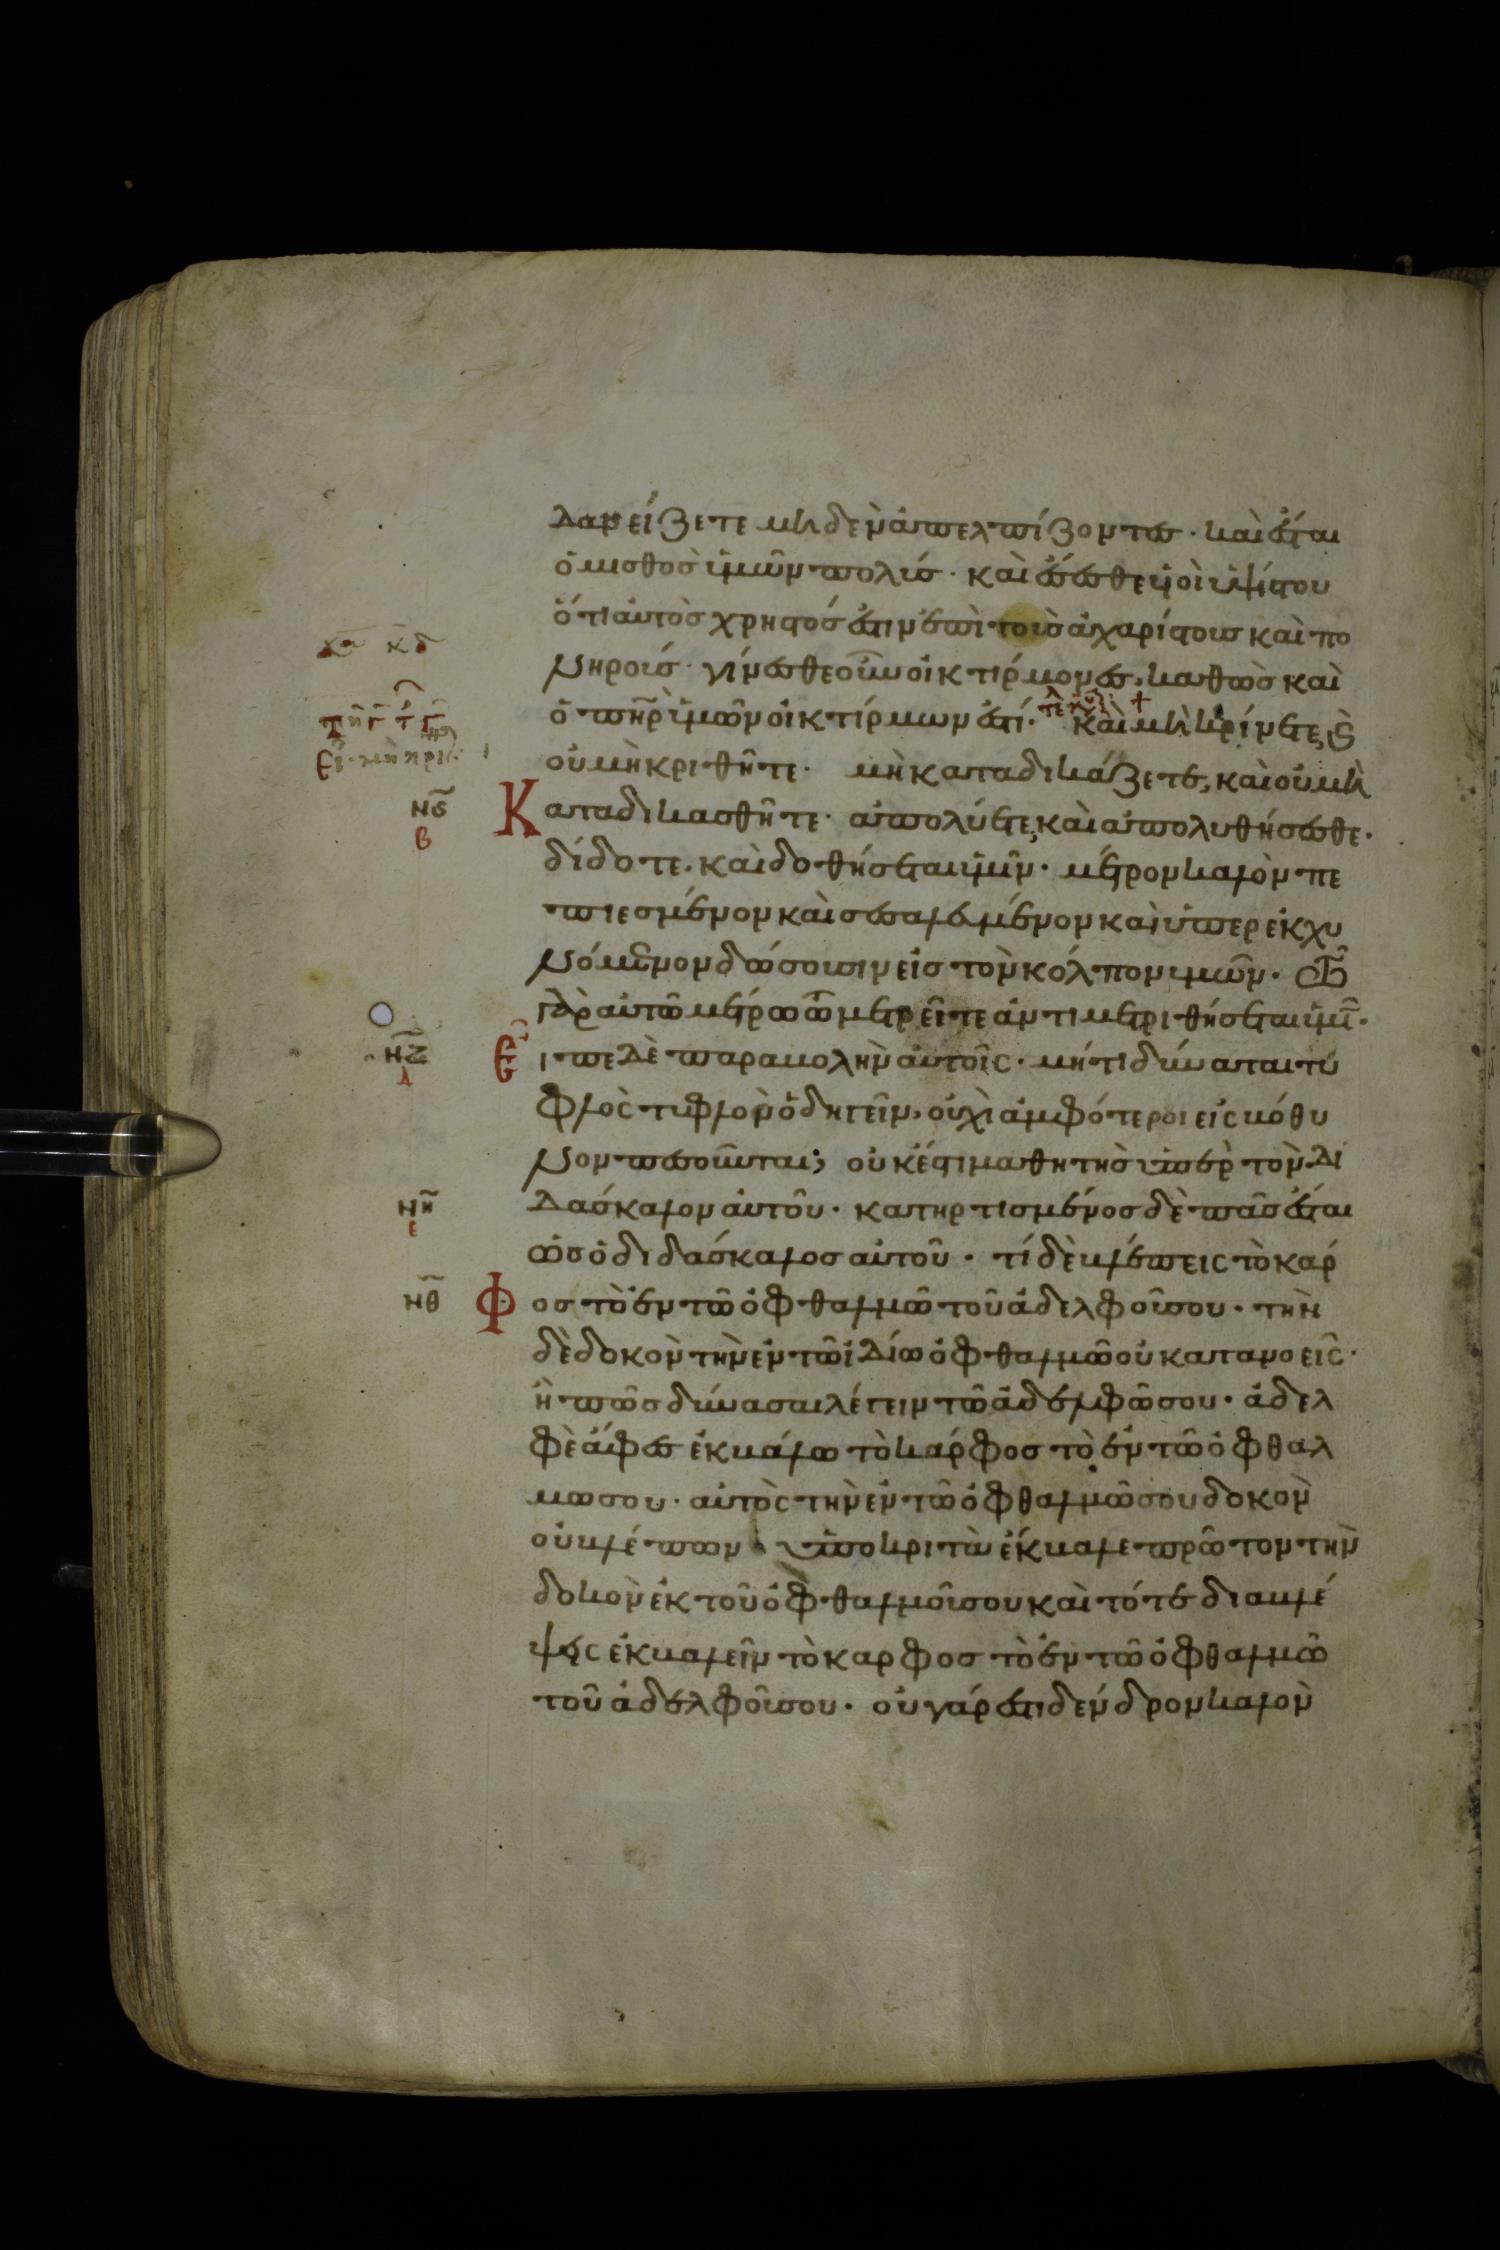 δανείζετε μηδὲν ἀπελπίζοντες · καὶ ἔσται
ὁ μισθὸσ ὑμῶν πολύσ · καὶ ἔσεσθε υἱοὶ ὑψίστου
ὅτι αὐτὸσ χρηστόσ ἐστιν ἐπὶ τοὺσ ἀχαρίστουσ καὶ πο
νηρούσ · γίνεσθε οὖν οἰκτίρμονες, καθὼσ καὶ
ὁ πη̃ρ ὑμῶν οἰκτίρμων ἐστί · καὶ μὴ κρίνετε, ϗ
οὐ μὴ κριθῆτε · μὴ καταδικάζετε, καὶ οὐ μὴ
Καταδικασθῆτε · ἀπολύετε, καὶ ἀπολυθήσεσθε ·
δίδοτε · καὶ δοθήσεται ὑμῖν · μέτρον καλὸν πε
πιεσμένον καὶ σεσαλευμένον καὶ ὑπερεκχυ
νόμενον δώσουσιν εἰσ τὸν κόλπον ὑμῶν · τῶ
γὰρ αὐτῶ μέτρω ὧ μετρεῖτε ἀντιμετρηθήσεται ὑμῖ ·
Εἶπε δὲ παραβολὴν αὐτοῖς · μήτι δύναται τυ
φλὸς τυφλὸν ὁδηγεῖν, οὐχὶ ἀμφότεροι εἰς βόθυ
νον πεσοῦνται; οὐκ ἔστι μαθητὴσ ὑπὲρ τὸν δι
δάσκαλον αὐτοῦ · κατηρτισμένοσ δὲ πᾶσ ἔσται
ὡσ ὁ διδάσκαλοσ αὐτοῦ · τί δὲ βλέπεις τὸ κάρ
Φοσ τὸ ἐν τῶ ὀφθαλμῶ τοῦ ἀδελφοῦ σου · τὴν
δὲ δοκὸν τὴν ἐν τῶ ἰδίω ὀφθαλμῶ οὐ κατανοεῖς ·
ἢ πῶσ δύνασαι λέγειν τῶ ἀδελφῶ σου · ἀδελ
φὲ ἄφες ἐκβάλω τὸ κάρφοσ τὸ ἐν τῶ ὀφθαλ
μω σου · αὐτὸς τὴν ἐν τῶ ὀφθαλμῶ σου δοκὸν
οὐ βλέπων · ὑποκριτὰ ἔκβαλε πρῶτον τὴν
δοκὸν ἐκ τοῦ ὀφθαλμοῦ σου καὶ τότε διαβλέ
ψεις ἐκβαλεῖν τὸ καρφοσ τὸ ἐν τῶ ὀφθαλμῶ
τοῦ ἀδελφοῦ σου · οὐ γάρ ἐστι δένδρον καλὸν
νϛ
β
νζ
νη
ε
νθ